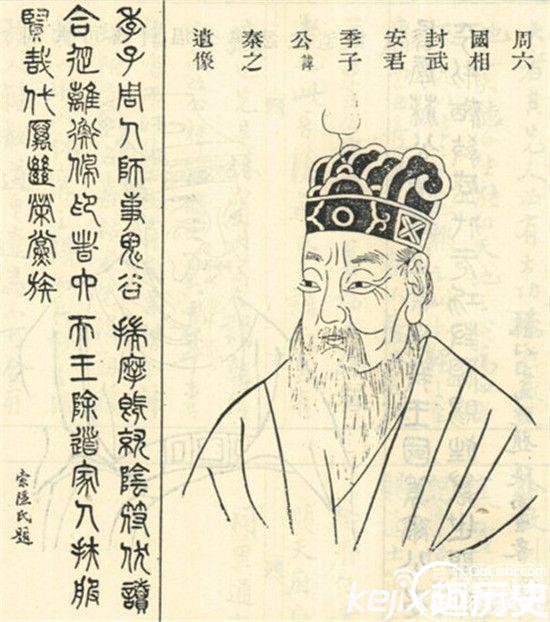 周六
國相
封武
安君
季子
公諱
秦之
遺像
季子周人師事鬼谷揣摩既就陰符伏讀
合從離衡佩印者六天王除道家人扶服
賢哉代厲繼榮黨族
索隱氏題
QuLishi.com
趣历史